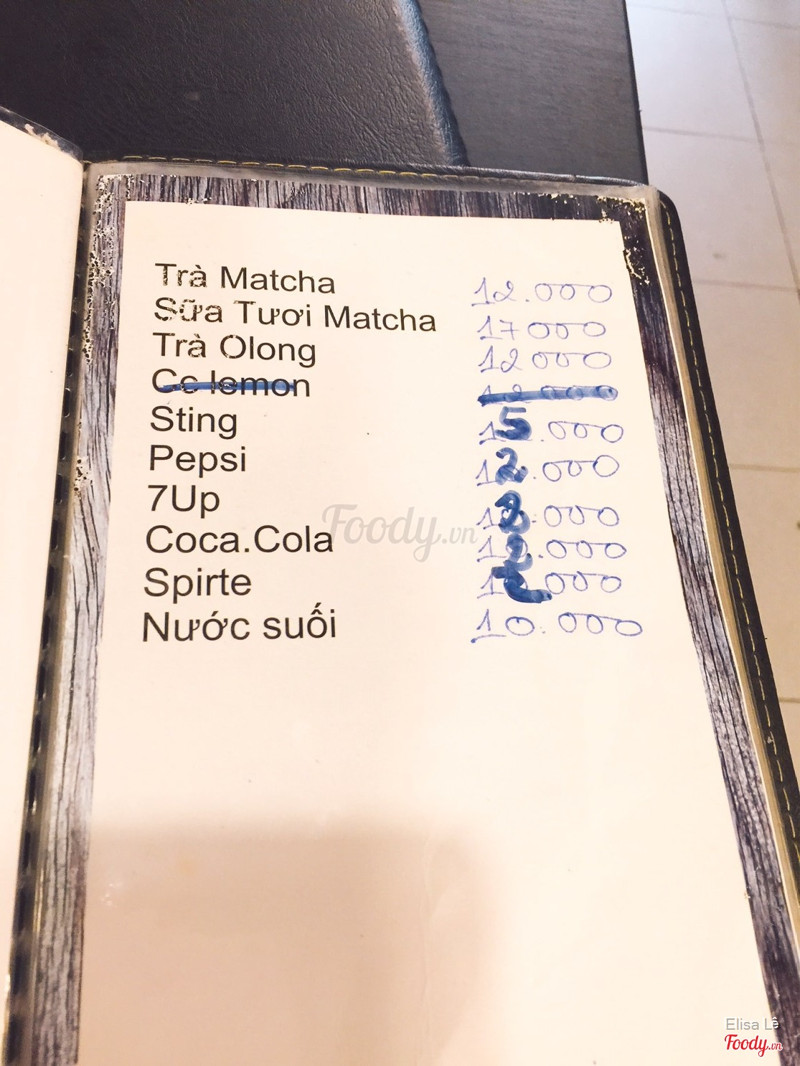 Trà Matcha 12.000
Sữa Tươi Matcha 17000
Trà Olong 12000
Cc lemon 12000
Sting 15.000
Pepsi 12.000
7Up 12.000
Coca.Cola 12.000
Spirte 12.000
Nước suối 10.000
Foody.vn
Elisa Lê
Foody.vn